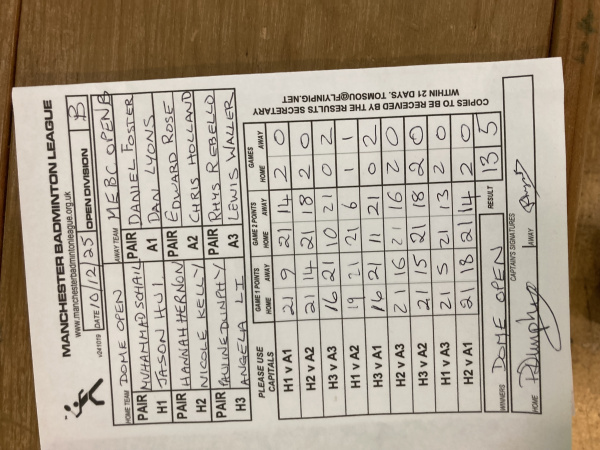 MANCHESTER BADMINTON LEAGUE
www.manchesterbadmintonleague.org.uk
v041019 DATE 10/12/25 OPEN DIVISION B
HOME TEAM DOME OPEN AWAY TEAM MEBC OPEN B
PAIR MUHAMMAD SCHAIL PAIR DANIEL FOSTER
H1 JASON HUI A1 DAN LYONS
PAIR HANNAH HERNON PAIR EDWARD ROSE
H2 NICOLE KELLY A2 CHRIS HOLLAND
PAIR PAULINE DUNPHY PAIR RHYS REBELLO
H3 ANGELA LI A3 LEWIS WALLER
PLEASE USE CAPITALS GAME 1 POINTS GAME 2 POINTS GAMES
HOME AWAY HOME AWAY HOME AWAY
H1 v A1 21 9 21 14 2 0
H2 v A2 21 14 21 18 2 0
H3 v A3 16 21 10 21 0 2
H1 v A2 19 21 21 6 1 1
H3 v A1 16 21 11 21 0 2
H2 v A3 21 16 21 16 2 0
H3 v A2 21 15 21 18 2 0
H1 v A3 21 5 21 13 2 0
H2 v A1 21 18 21 14 2 0
WINNERS DOME OPEN RESULT 13 5
CAPTAIN'S SIGNATURES
HOME PDunphy AWAY
COPIES TO BE RECEIVED BY THE RESULTS SECRETARY
WITHIN 21 DAYS. TOMSOU@FLYINPIG.NET